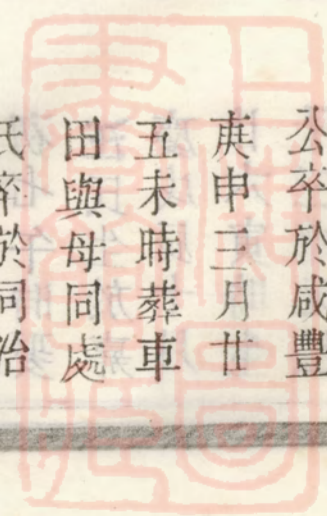 公卒於咸豐
庚申三月廿
五未時葬車
田與母同處
氏卒於同治